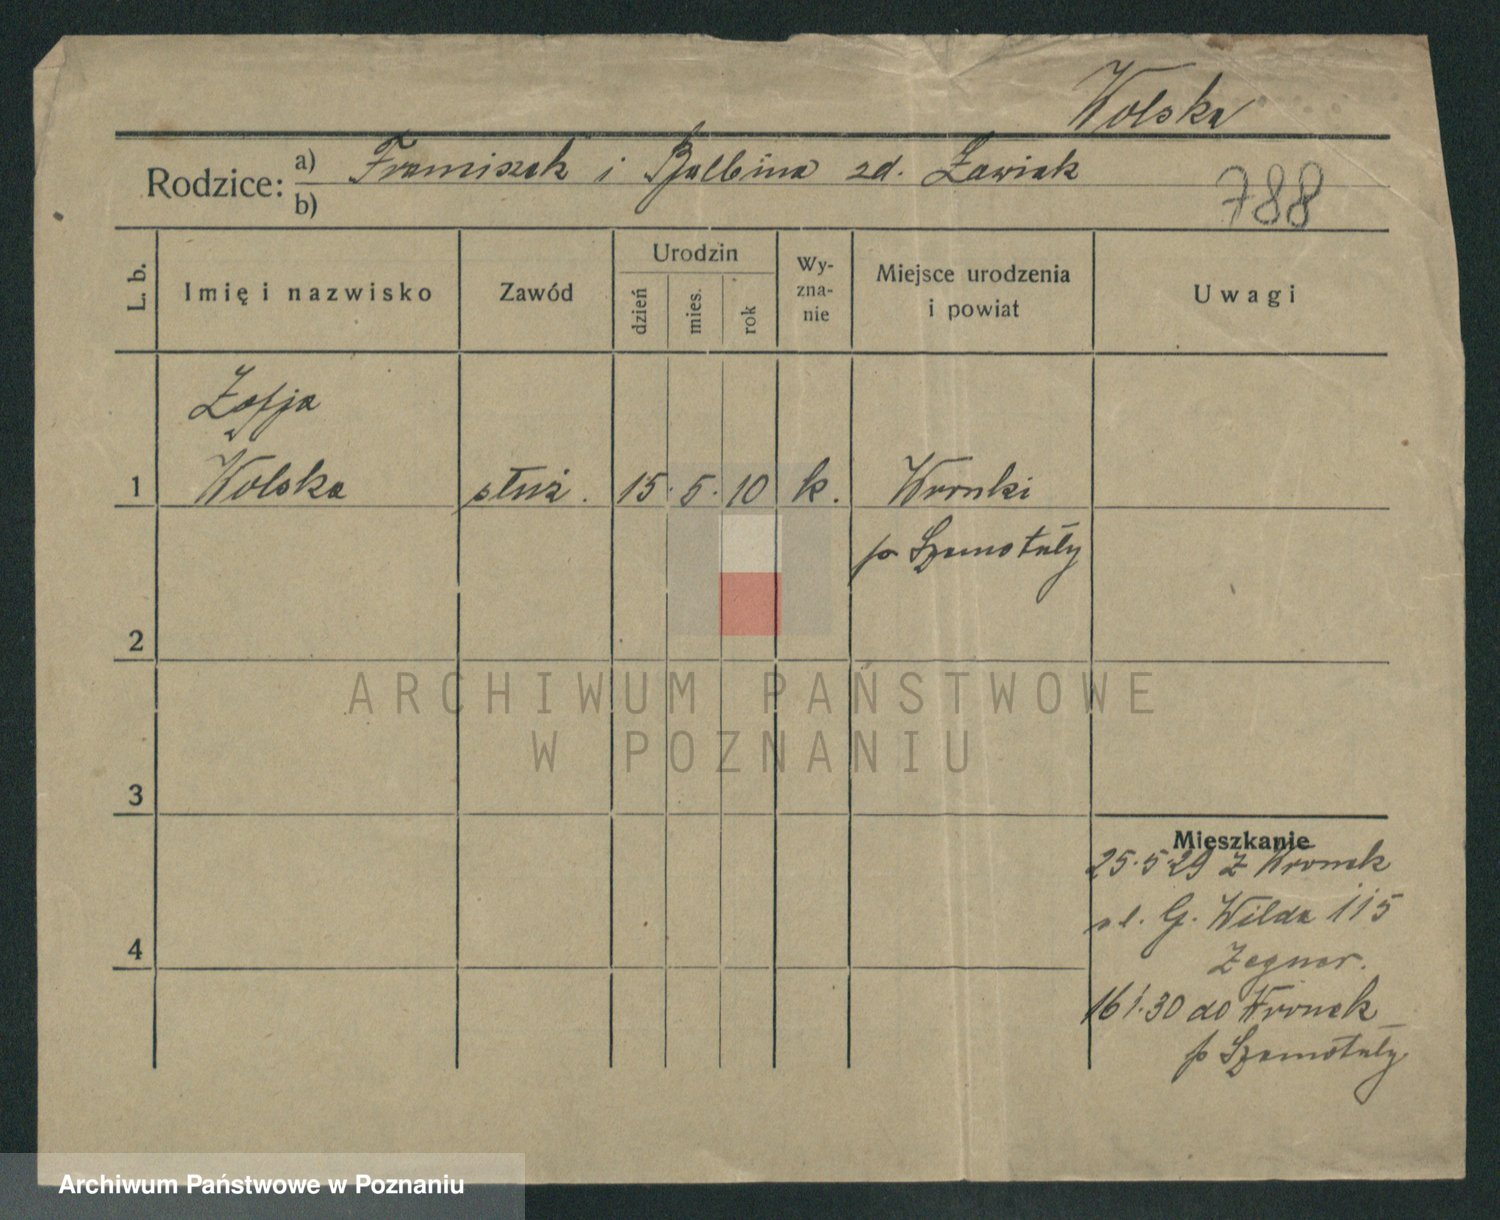 Wolska
Rodzice: a) Franciszek i Balbina zd. Zawiak
b)
788
L. b.
Imię i nazwisko
Zawód
Urodzin
dzień
mies.
rok
Wy-
zna-
nie
Miejsce urodzenia
i powiat
Uwagi
Zofja
1 Wolska służ. 15. 5. 10 k. Wronki
p Szamotuły
2
ARCHIWUM PAŃSTWOWE
W POZNANIU
3
Mieszkanie
25.5.29 z Wronek
ul. G. Wilda 115
4
Zegner.
16 1.30 do Wronek
p Szamotuły
Archiwum Państwowe w Poznaniu